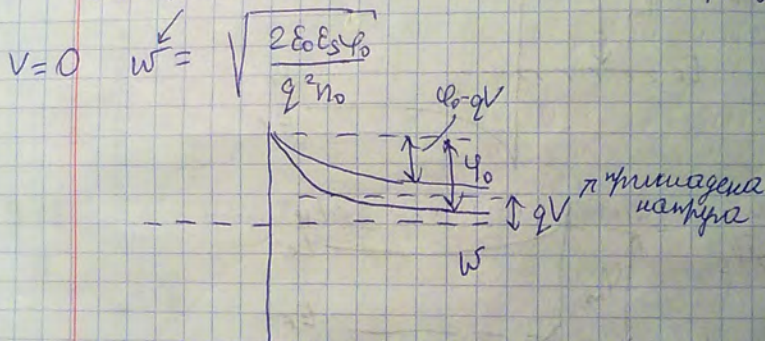 V=0 w = √(2ε₀ε_sφ₀ / q²n₀)
φ₀-qV
φ₀
qV
прикладена
напруга
w